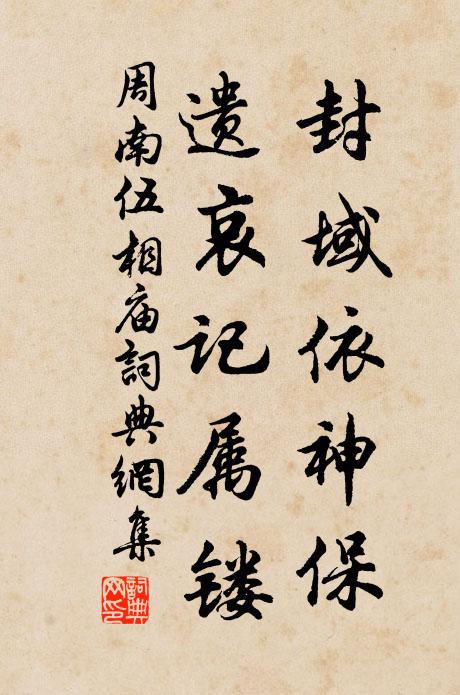 封域依神保
遗哀记属镂
周南伍相庙词典網集
詞典网印